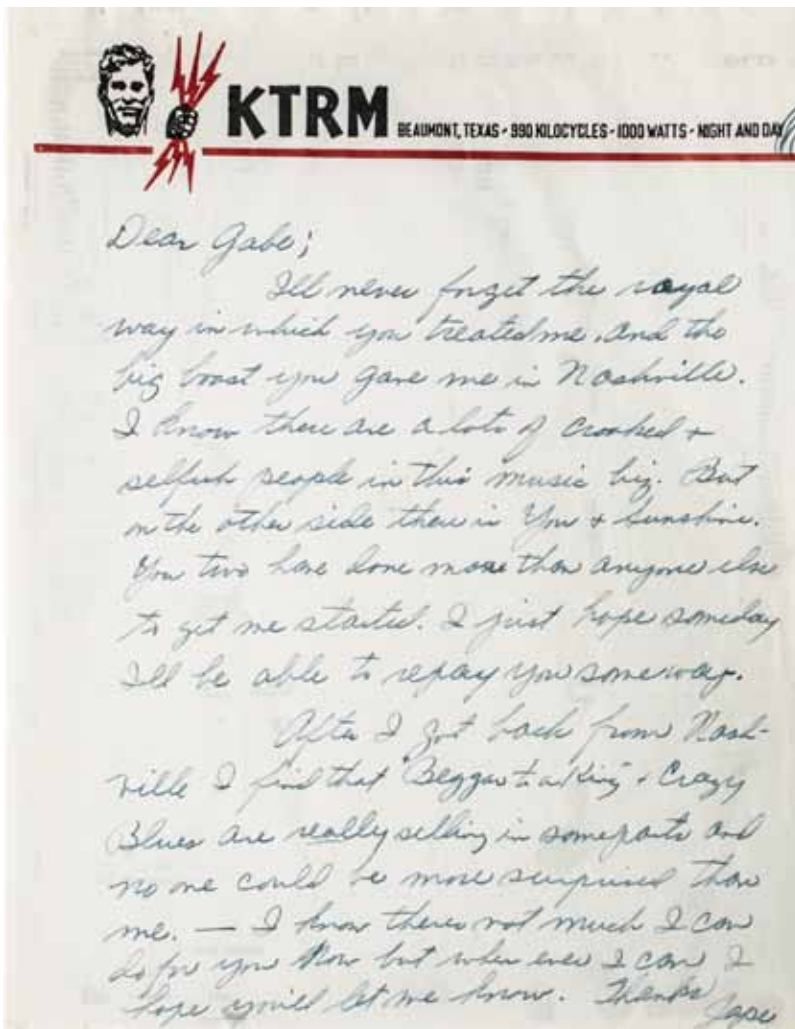 KTRM BEAUMONT, TEXAS - 990 KILOCYCLES - 1000 WATTS - NIGHT AND DAY
Dear Gabe;
I'll never forget the royal
way in which you treated me. And the
big boost you gave me in Nashville.
I know there are a lots of crooked +
selfish people in this music biz. But
on the other side there is You + Sunshine.
You two have done more than anyone else
to get me started. I just hope someday
I'll be able to repay you someway.
After I got back from Nash-
ville I find that "Beggar to a King" + Crazy
Blues are really selling in some parts and
no one could be more surprised than
me. — I know theres not much I can
do for you Now but when ever I can I
hope you'll let me know. Thanks
Jape